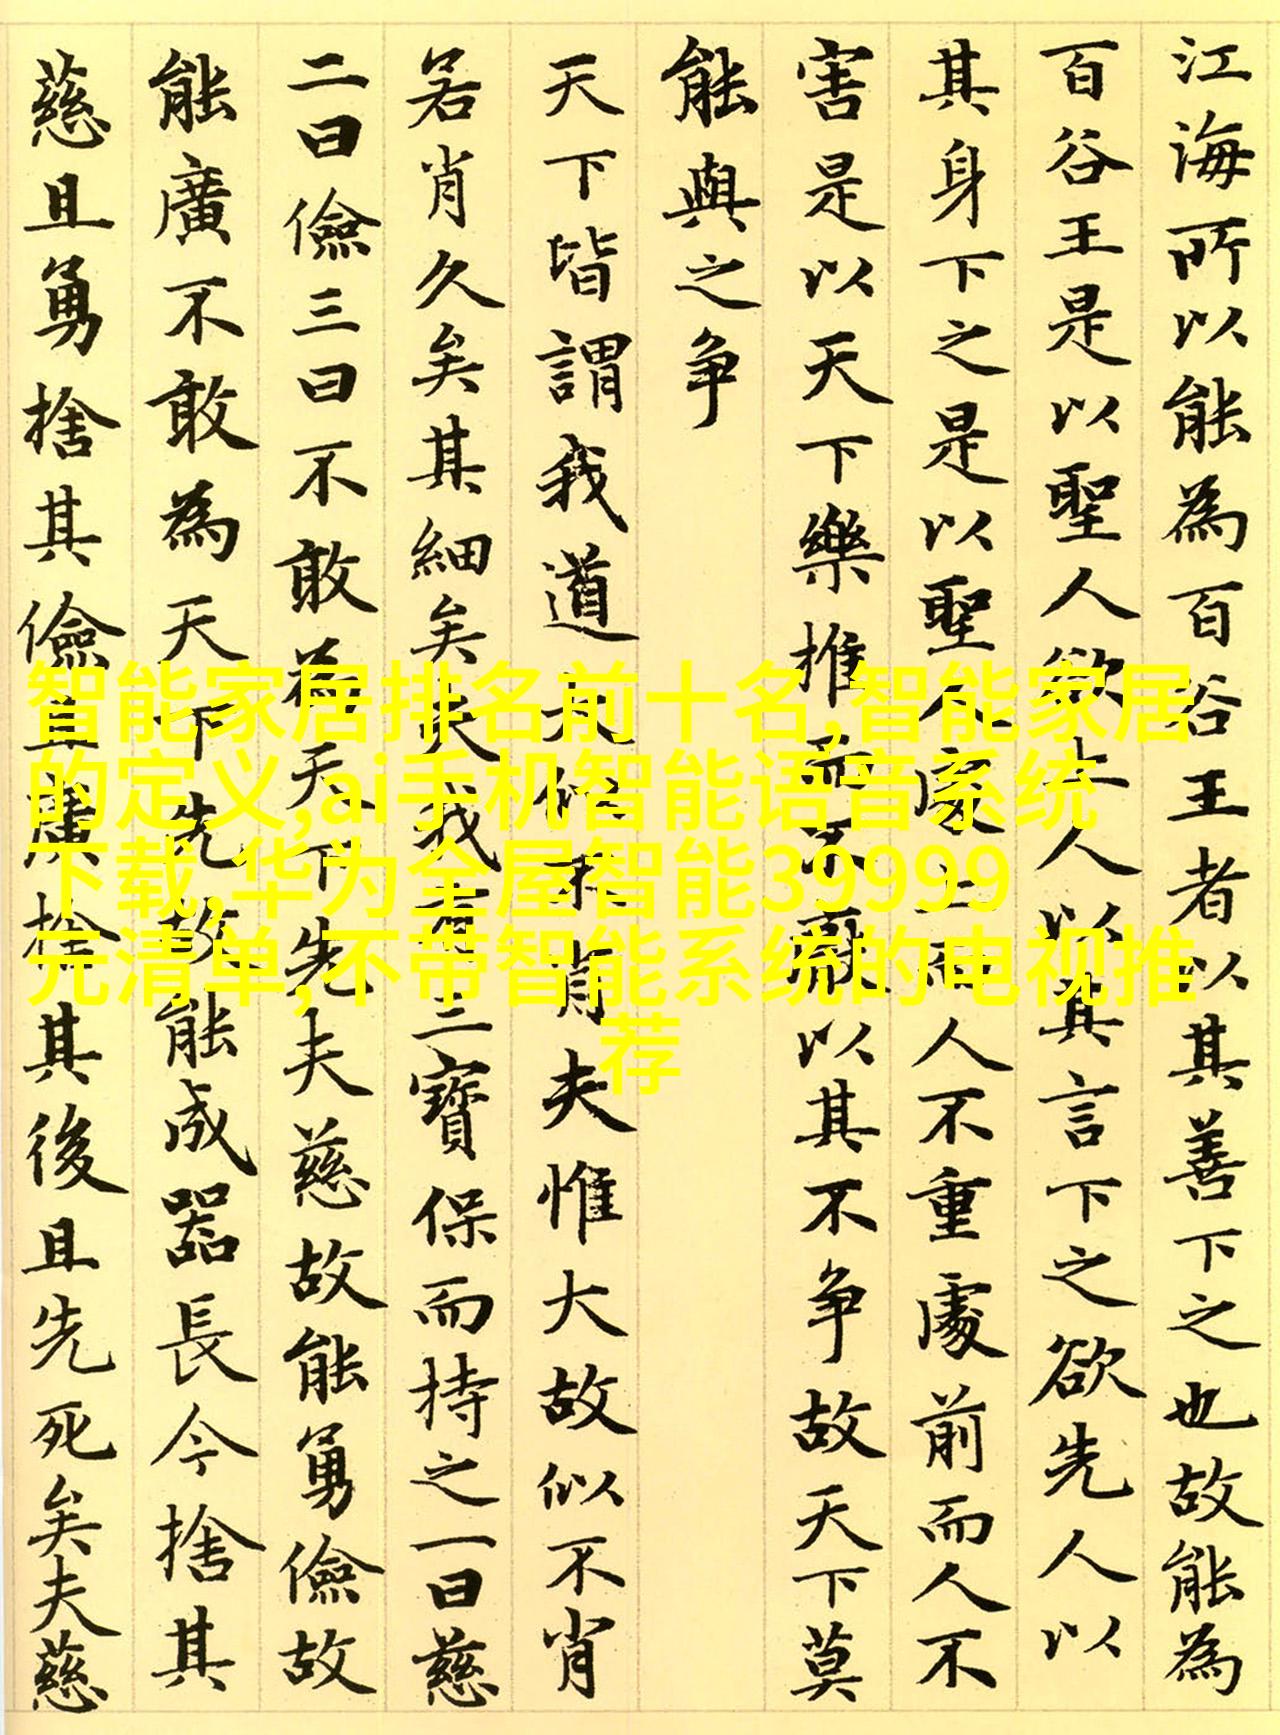 江海所以能為百谷王者以其善下之也故能為
百谷王是以聖人欲上人以其言下之欲先人以
其身下之是以聖人處上而人不重處前而人不
害是以天下樂推而不厭以其不争故天下莫
能與之争
天下皆謂我道大似不肖夫惟大故似不肖
若肖久矣其細矣夫我有三寶保而持之一曰慈
二曰儉三曰不敢為天下先夫慈故能勇儉故
能廣不敢為天下先故能成器長今捨其
慈且勇捨其儉且廣捨其後且先死矣夫慈
智能家居排名前十名,智能家居
的定义,ai手机智能语音系统
下载,华为全屋智能39999
元清单,不带智能系统的电视推
荐